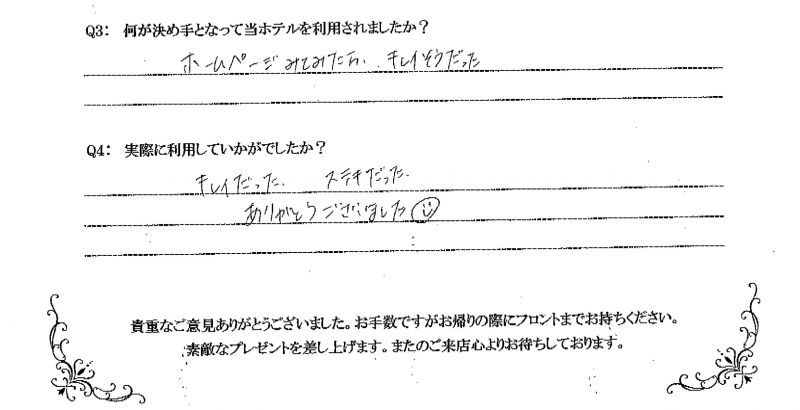 Q3: 何が決め手となって当ホテルを利用されましたか？
ホームページみてみたら、キレイそうだった
Q4: 実際に利用していかがでしたか？
キレイだった、 ステキだった、
ありがとうございました
貴重なご意見ありがとうございました。お手数ですがお帰りの際にフロントまでお持ちください。
素敵なプレゼントを差し上げます。またのご来店心よりお待ちしております。